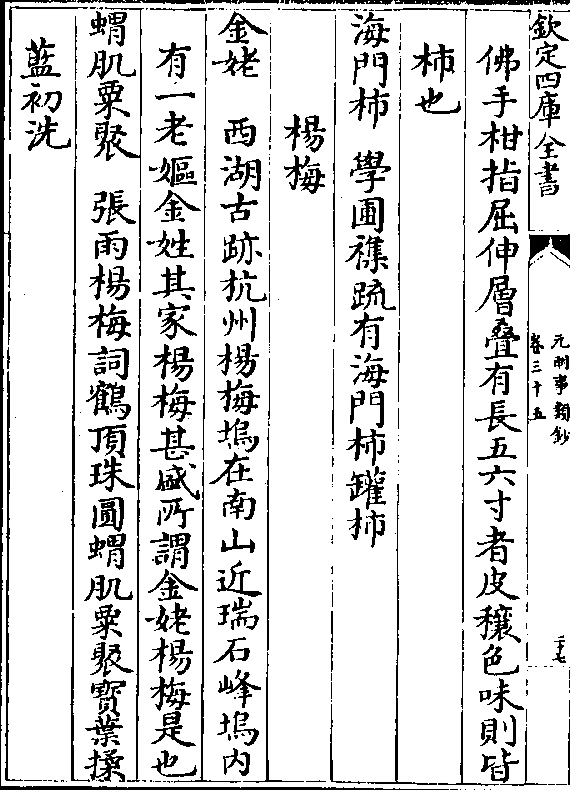 欽定四庫全書
元明事類鈔
卷三十五
二十七
佛手柑指屈伸層叠有長五六寸者皮穰色味則皆
柿也
海門柿 學圃襍疏有海門柿罐柿
楊梅
金姥 西湖古跡杭州楊梅塢在南山近瑞石峰塢内
有一老嫗金姓其家楊梅甚盛所謂金姥楊梅是也
蝟肌粟聚 張雨楊梅詞鶴頂珠圓蝟肌粟聚寳葉揉
藍初洗